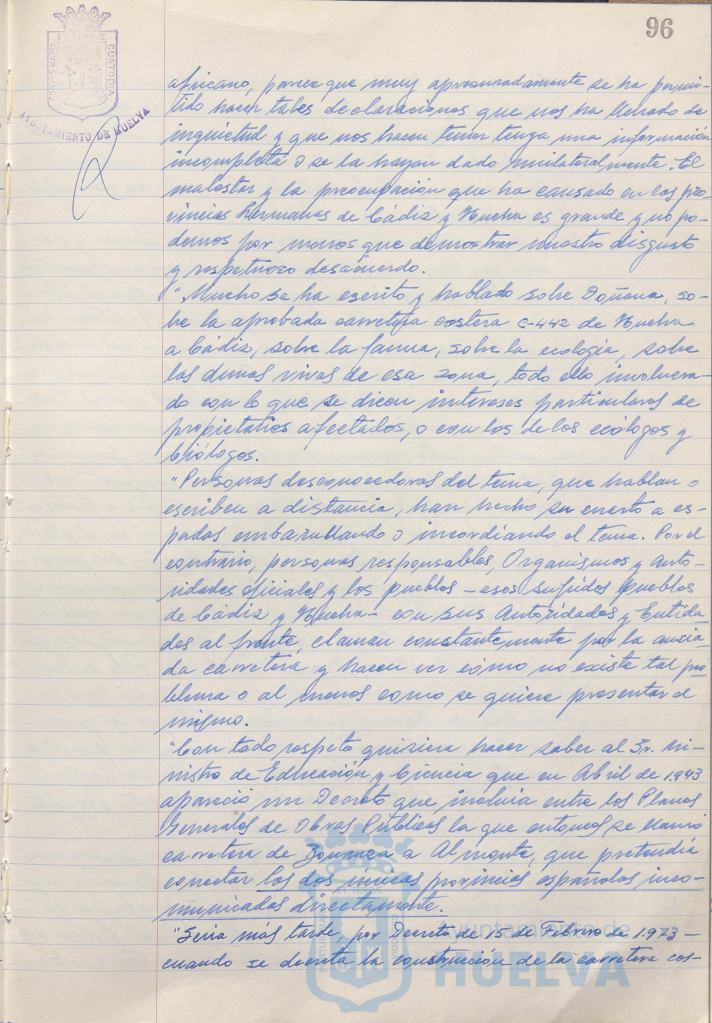 96
PORTUS MARIS
CUSTODIA
AYUNTAMIENTO DE HUELVA
africano, parece que muy apresuradamente se ha permi-
tido hacer tales declaraciones que nos ha llenado de
inquietud y que nos hacen temer tenga una información
incompleta o se la hayan dado unilateralmente. El
malestar y la preocupación que ha causado en las pro-
vincias hermanas de Cádiz y Huelva es grande y no po-
demos por menos que demostrar nuestro disgusto
y respetuoso desacuerdo.
"Mucho se ha escrito y hablado sobre Doñana, so-
bre la aprobada carretera costera C-442 de Huelva
a Cádiz, sobre la fauna, sobre la ecología, sobre
las dunas vivas de esa zona, todo ello involucra-
do con lo que se dicen intereses particulares de
propietarios afectados, o con los de los ecólogos y
biólogos.
"Personas desconocedoras del tema, que hablan o
escriben a distancia, han hecho su cuarto a es-
padas embarullando o incordiando el tema. Por el
contrario, personas responsables, Organismos y Auto-
ridades oficiales y los pueblos - esos sufridos pueblos
de Cádiz y Huelva - con sus Autoridades y Entida-
des al frente, claman constantemente por la ansia-
da carretera y hacen ver cómo no existe tal pro-
blema o al menos como se quiere presentar el
mismo.
"Con todo respeto quisiera hacer saber al Sr. Mi-
nistro de Educación y Ciencia que en Abril de 1943
apareció un Decreto que incluía entre los Planes
Generales de Obras Públicas la que entonces se llamó
carretera de Bonanza a Almonte, que pretendía
conectar las dos únicas provincias españolas inco-
municadas directamente.
"Sería más tarde, por Decreto de 15 de Febrero de 1.973 -
cuando se decreta la construcción de la carretera cos-
Ayuntamiento de
HUELVA